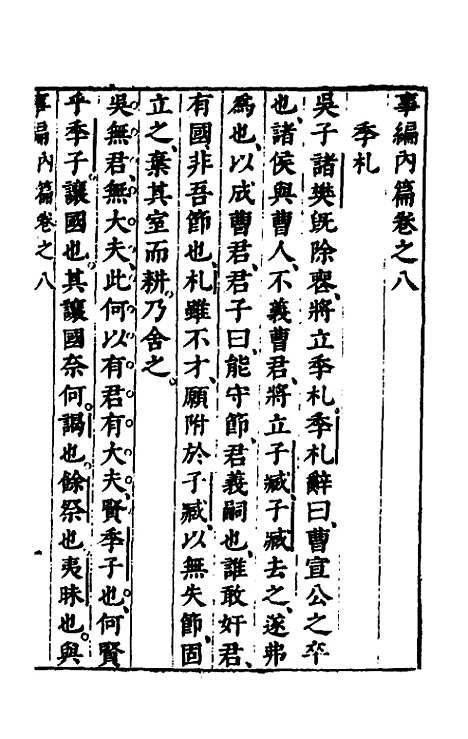 事編內篇卷之八
季札
吳子諸樊旣除喪將立季札季札辭曰曹宣公之卒
也諸侯與曹人不義曹君將立子臧子臧去之遂弗
爲也以成曹君君子曰能守節君義嗣也誰敢奸君
有國非吾節也札雖不才願附於子臧以無失節固
立之棄其室而耕乃舍之
吳無君無大夫此何以有君有大夫賢季子也何賢
乎季子讓國也其讓國奈何謁也餘祭也夷昧也與
事編內篇卷之八